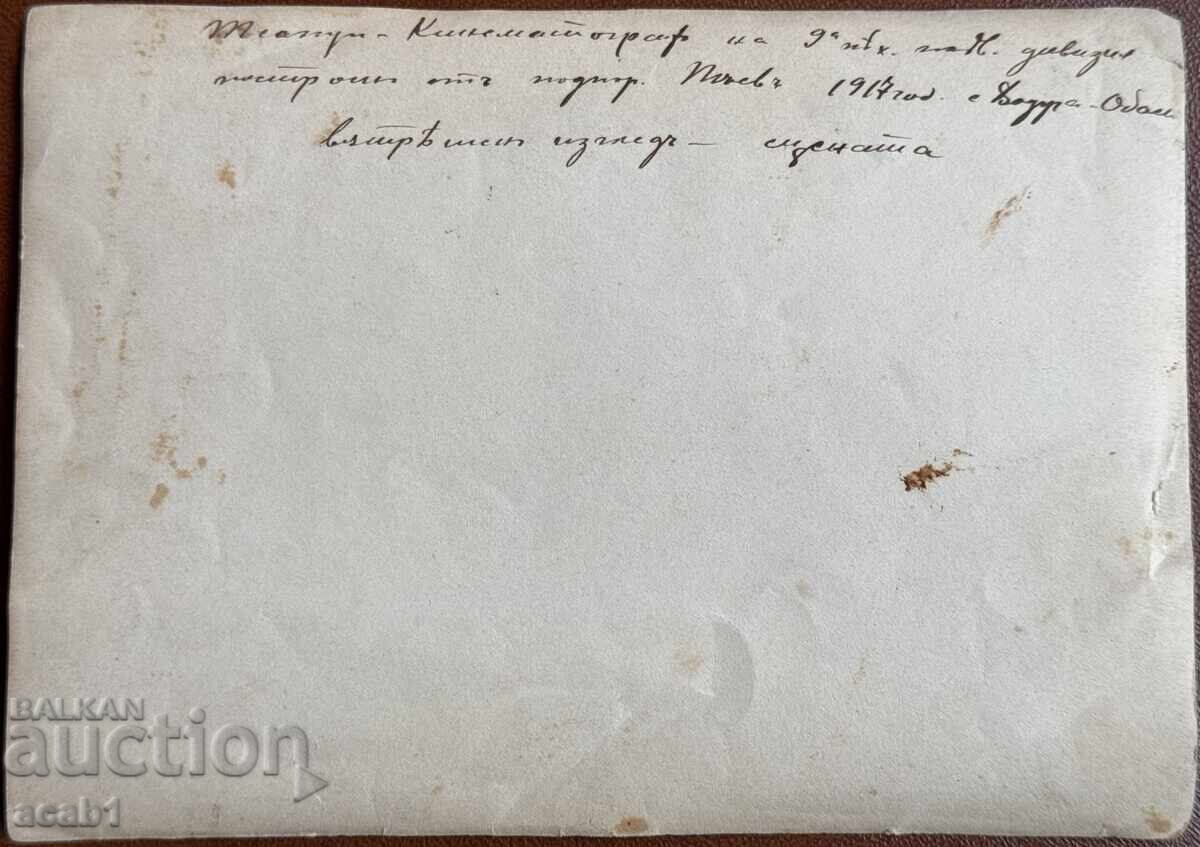 Театръ - Кинематографъ на 9а пех. плѣв. дивизия
построенъ отъ подпор. Пѣевъ 1917 год. с. Бадура-Обаси
вѫтрѣшенъ изгледъ - сцената
BALKAN
auction
acab1